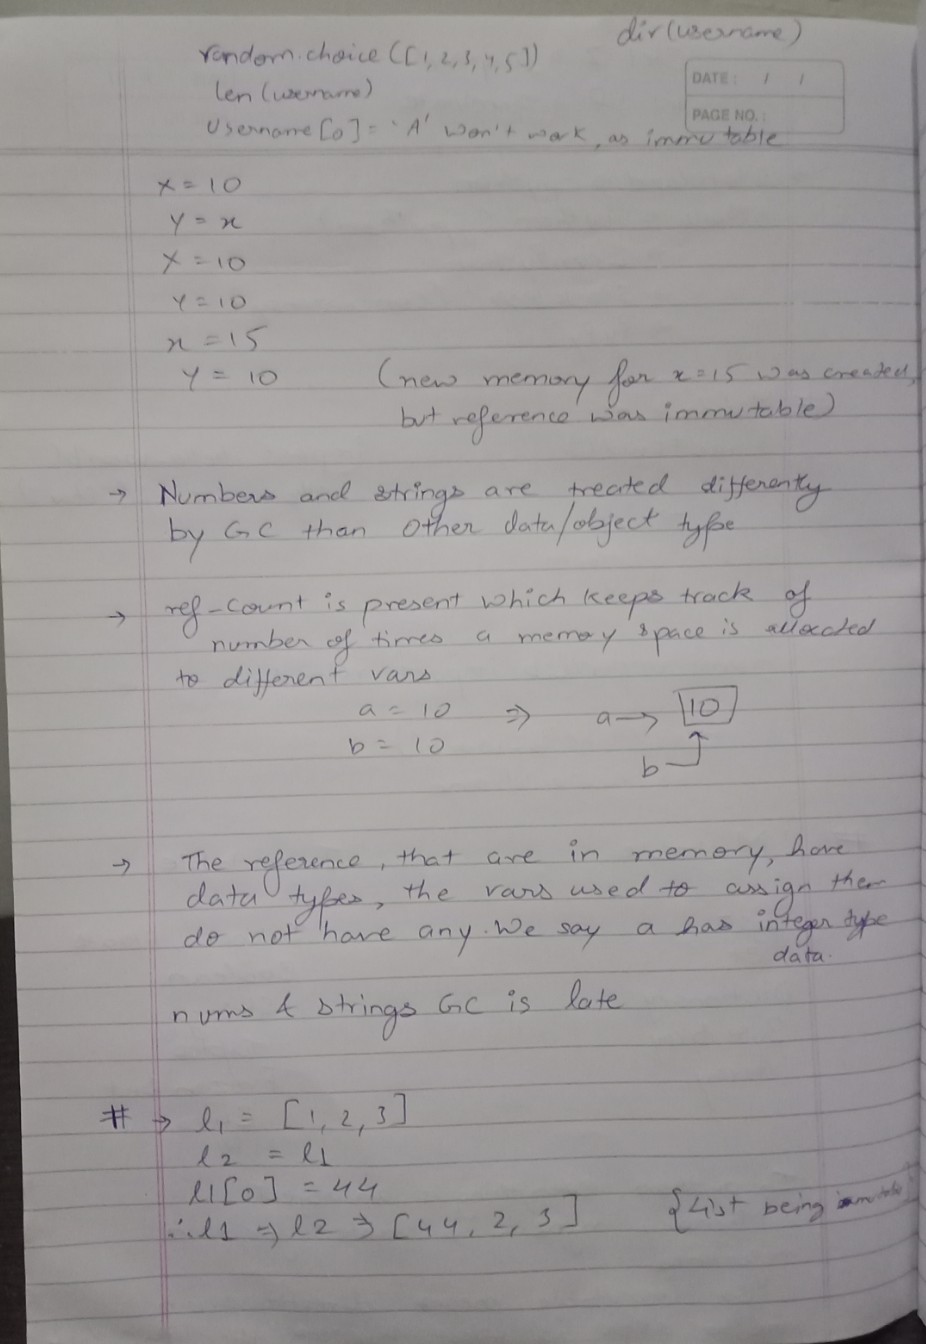 dir(username)
random.choice([1,2,3,4,5])
len(username)
DATE: / /
PAGE NO.:
Username[0] = 'A' won't work, as immutable
x = 10
y = x
x = 10
y = 10
x = 15
y = 10 (new memory for x=15 was created,
but reference was immutable)
→ Numbers and strings are treated differently
by GC than other data/object type
→ ref-count is present which keeps track of
number of times a memory space is allocated
to different vars
a = 10 ⇒ a → 10
b = 10
b
→ The reference, that are in memory, have
data types, the vars used to assign them
do not have any. We say a has integer type
data.
nums & strings GC is late
# → l1 = [1, 2, 3]
l2 = l1
l1[0] = 44
∴ l1 ⇒ l2 ⇒ [44, 2, 3] {List being